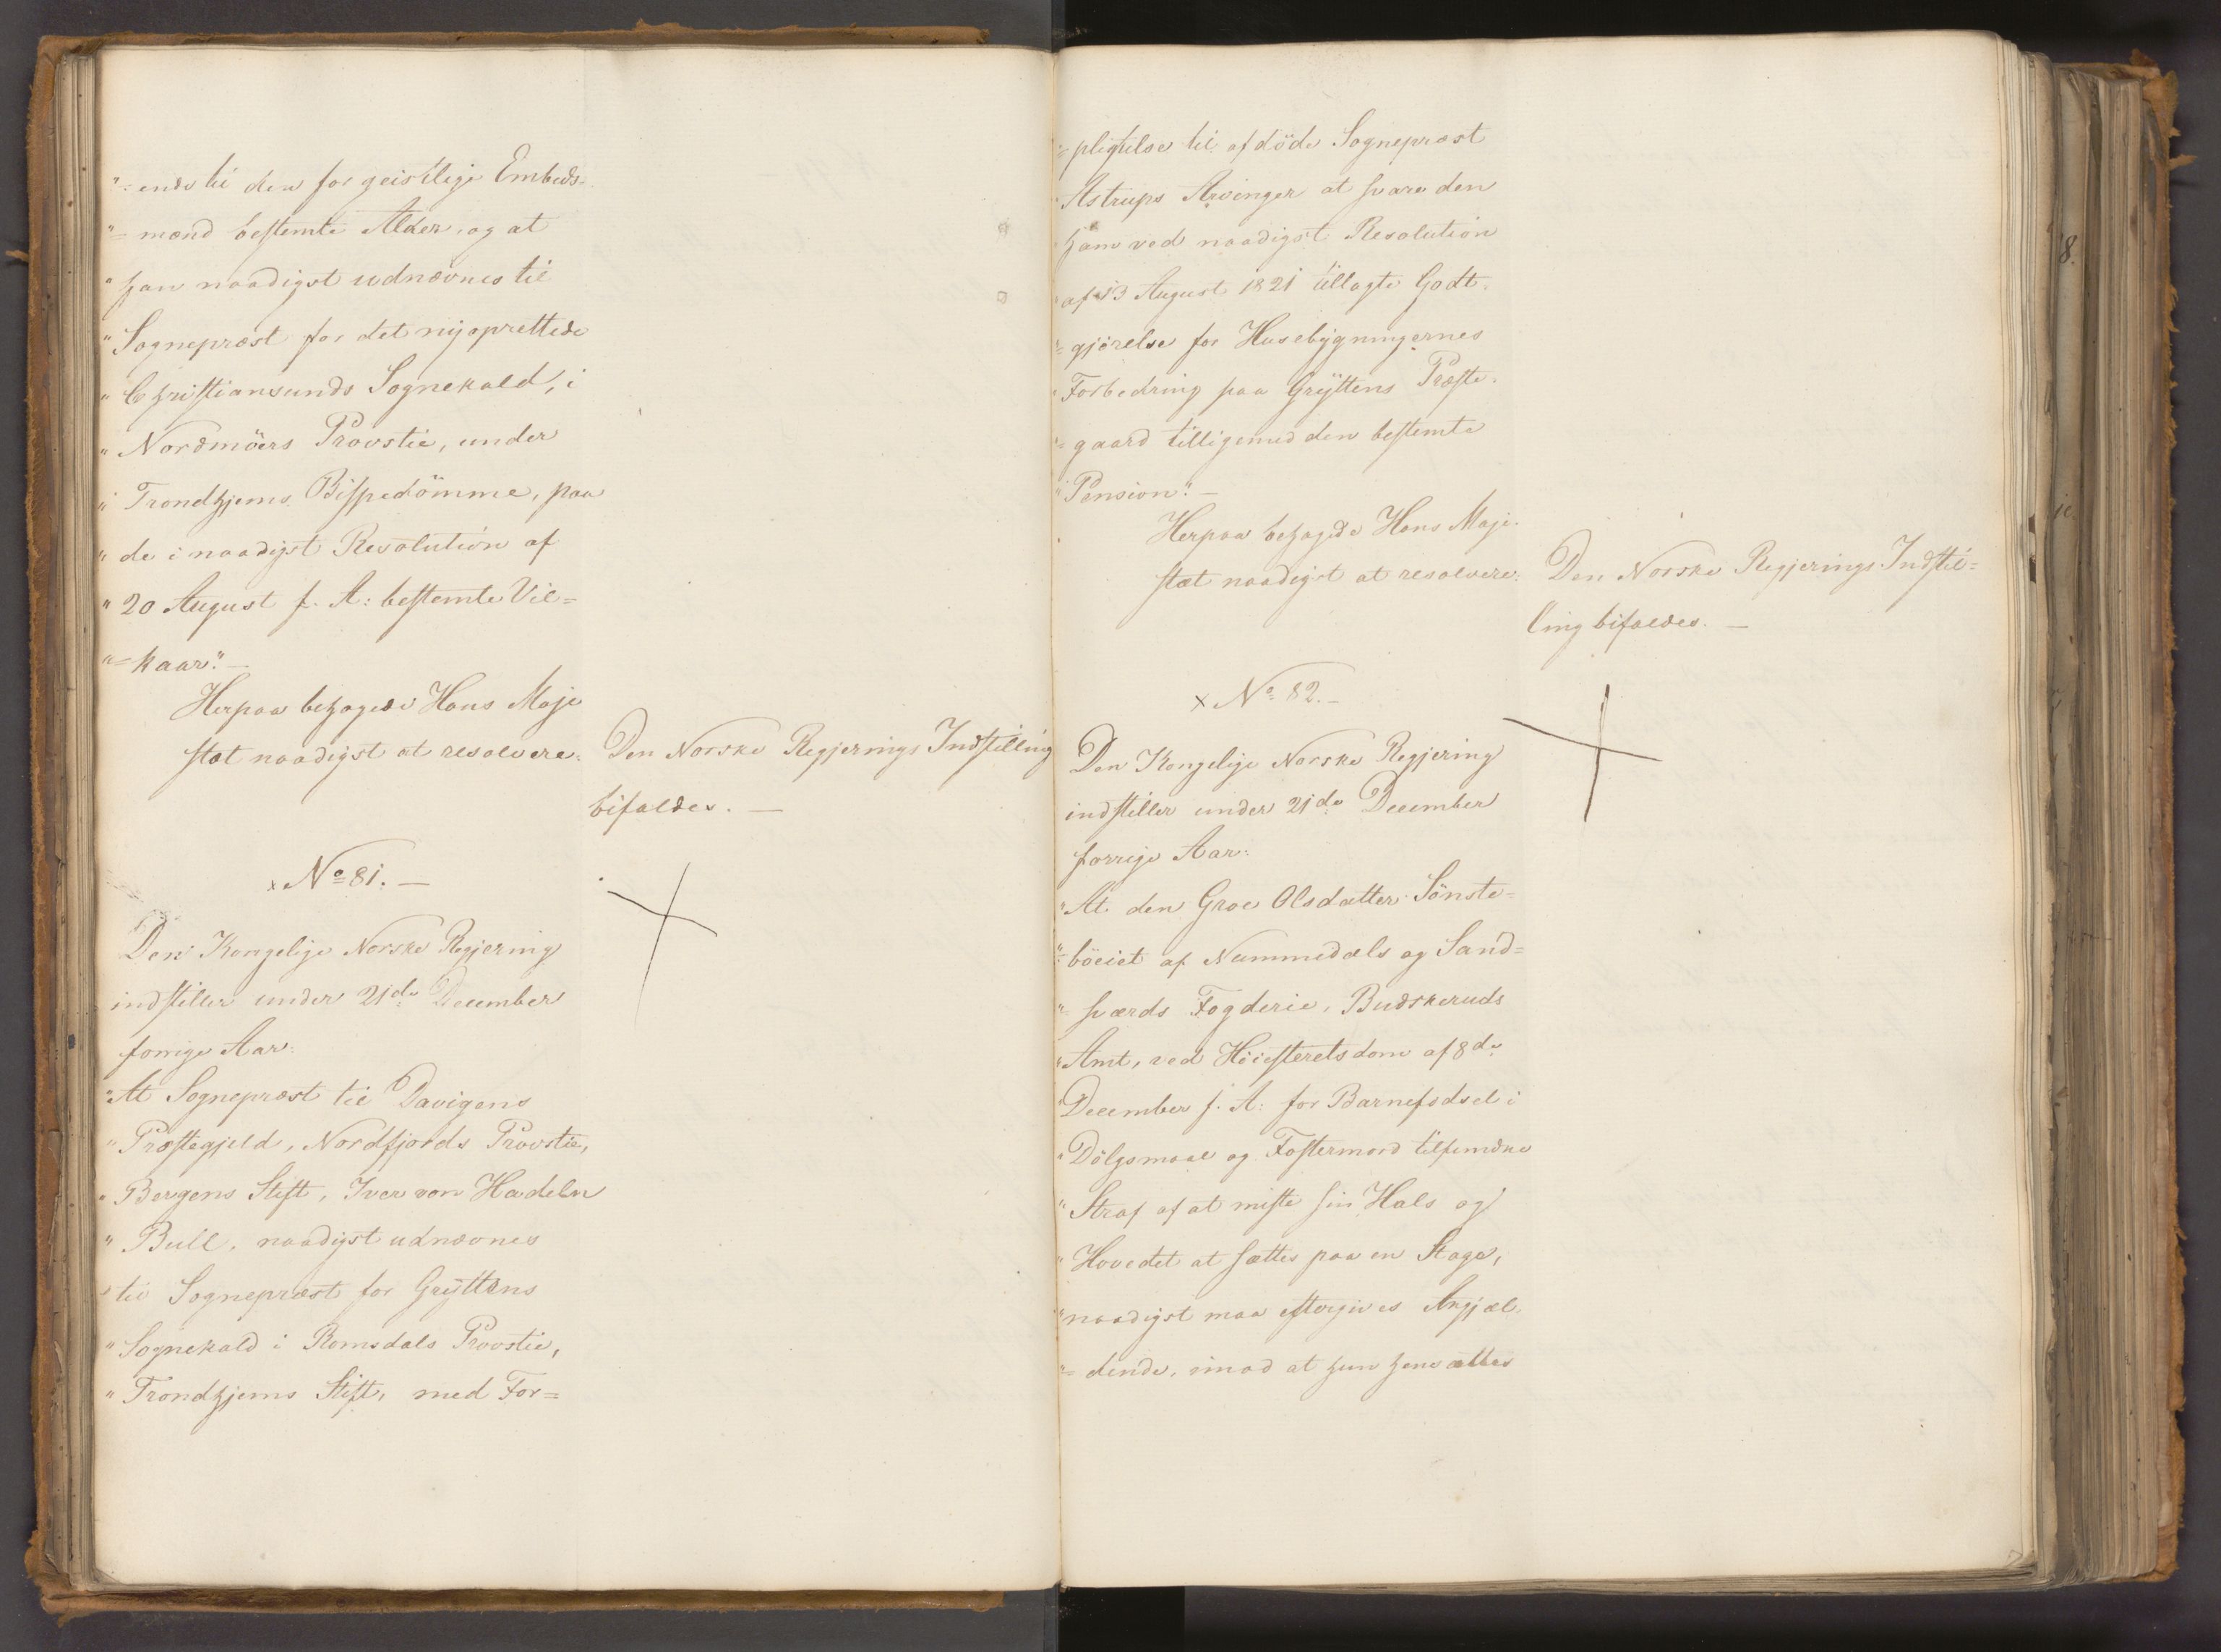 "=ende til den for geistlige Embeds=
"=mænd bestemte Alder, og at
"han naadigst udnævnes til
"Sognepræst for det nyoprettede
"Christiansunds Sognekald, i
"Nordmöers Provstie, under
"Trondhjems Bispedömme, paa
"de i naadigst Resolution af
"20 August f. A: bestemte Vil=
"=kaar."—
Herpaa behagede Hans Maje
stæt naadigst at resolvere:
Den Norske Regjerings Indstilling
bifaldes. —
x No 81. —
Den Kongelige Norske Regjering
indstiller under 21de December
forrige Aar:
"At Sognepræst til Davigens
"Præstegjeld, Nordfjords Provstie,
"Bergens Stift, Iver von Hadeln
"Bull, naadigst udnævnes
"til Sognepræst for Gryttens
"Sognekald i Romsdals Provstie,
"Trondhjems Stift, med For=
"=pligtelse til afdöde Sognepræst
"Astrups Arvinger at svare den
"ham ved naadigst Resolution
"af 13 August 1821 tillagte Godt=
"=gjörelse for Husebygningernes
"Forbedring paa Gryttens Præste=
"=gaard tilligemed den bestemte
"Pension." —
Herpaa behagede Hans Maje
stæt naadigst at resolvere:
Den Norske Regjerings Indstil=
ling bifaldes. —
x No 82. —
Den Kongelige Norske Regjering
indstiller under 21de December
forrige Aar:
"At den Groe Olsdatter Sönste=
"=böeiet af Nummedals og Sand=
"=sværds Fogderie, Budskeruds
"Amt, ved Höiesteretsdom af 8de
"December f. A: for Barnefødsel i
"Dölgsmaal og Fostermord tilfundne
"Straf af at miste sin Hals og
"Hovedet at sættes paa en Stage,
"naadigst maa eftergives Angjæl=
"=dende, imod at hun hensættes